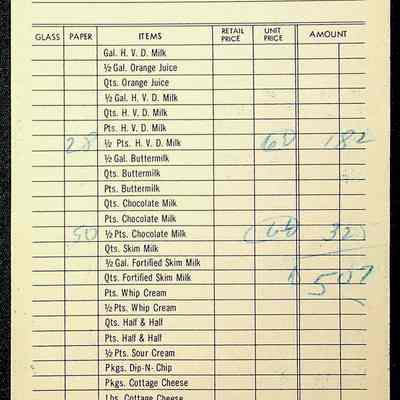 GLASS PAPER ITEMS RETAIL PRICE UNIT PRICE AMOUNT
Gal. H. V. D. Milk
½ Gal. Orange Juice
Qts. Orange Juice
½ Gal. H. V. D. Milk
Qts. H. V. D. Milk
Pts. H. V. D. Milk
28 ½ Pts. H. V. D. Milk 182
½ Gal. Buttermilk
Qts. Buttermilk
Pts. Buttermilk
Qts. Chocolate Milk
Pts. Chocolate Milk
50 ½ Pts. Chocolate Milk
Qts. Skim Milk
½ Gal. Fortified Skim Milk
Qts. Fortified Skim Milk 507
Pts. Whip Cream
½ Pts. Whip Cream
Qts. Half & Half
Pts. Half & Half
½ Pts. Sour Cream
Pkgs. Dip-N-Chip
Pkgs. Cottage Cheese
Lbs. Cottage Cheese